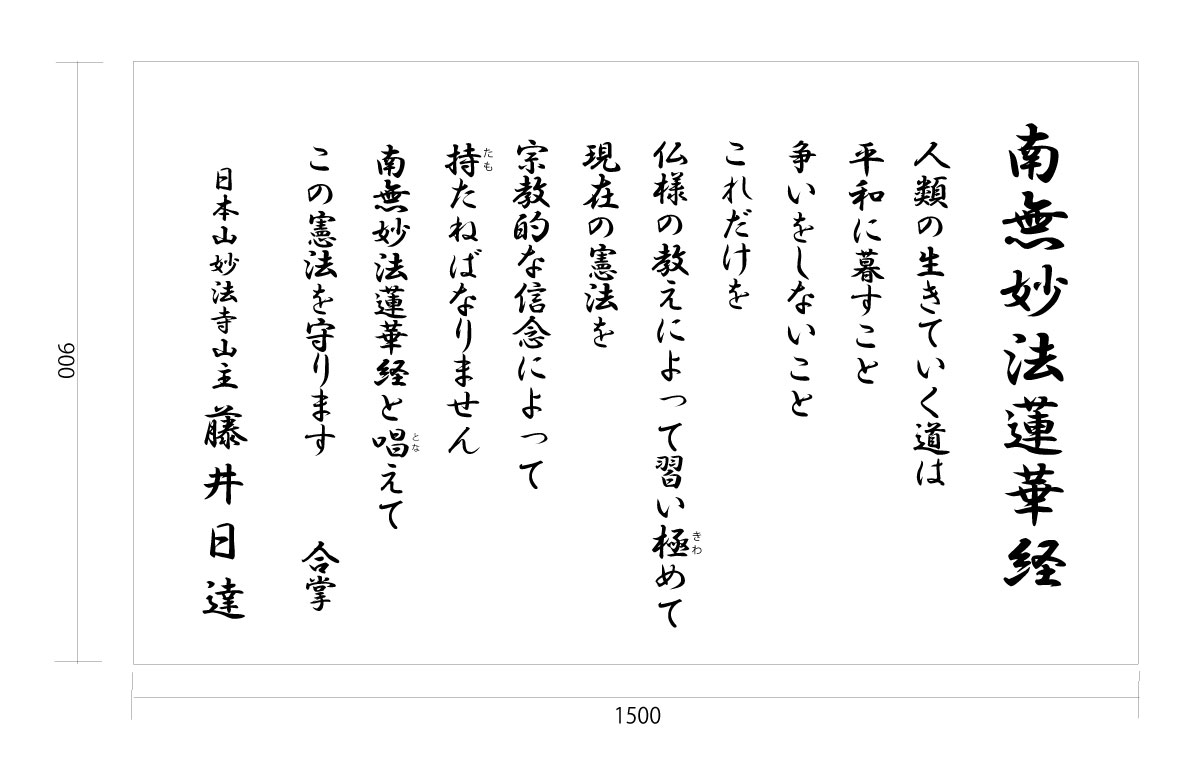 南無妙法蓮華経
人類の生きていく道は
平和に暮すこと
争いをしないこと
これだけを
仏様の教えによって習い極めて
きわ
現在の憲法を
宗教的な信念によって
持たねばなりません
たも
南無妙法蓮華経と唱えて
とな
この憲法を守ります　合掌
日本山妙法寺山主 藤井日達
900
1500